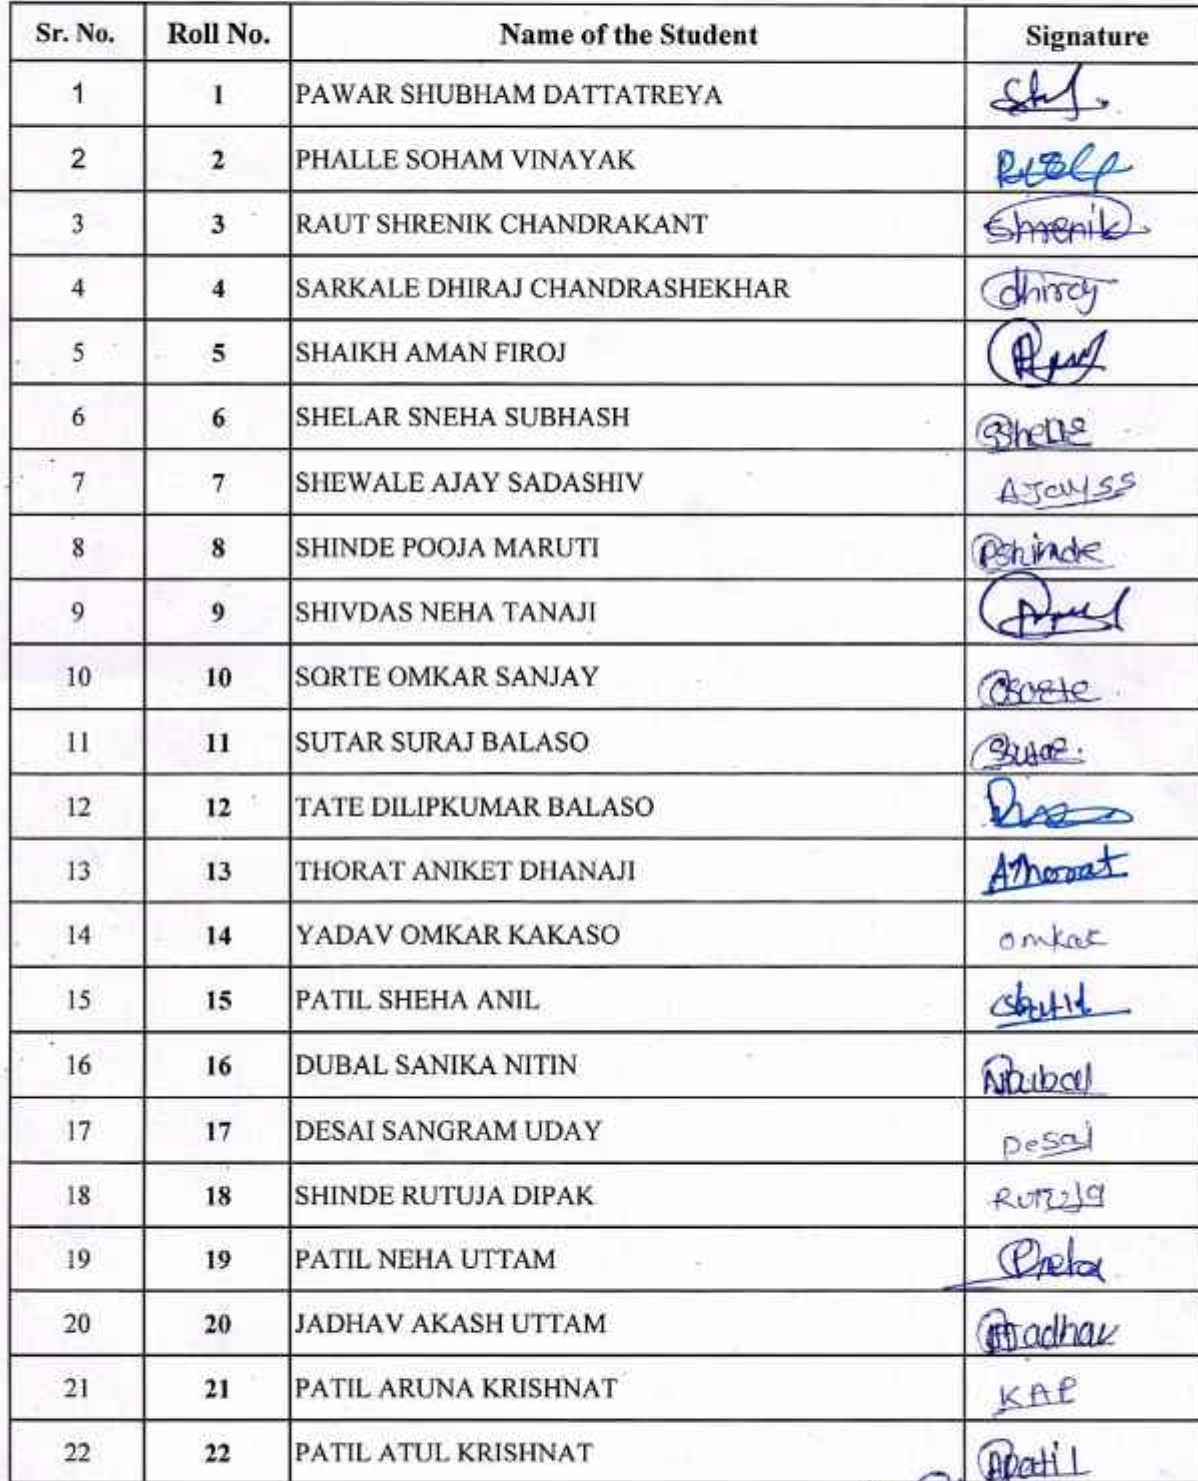 Sr. No. Roll No. Name of the Student Signature
1 1 PAWAR SHUBHAM DATTATREYA
2 2 PHALLE SOHAM VINAYAK
3 3 RAUT SHRENIK CHANDRAKANT Shrenik
4 4 SARKALE DHIRAJ CHANDRASHEKHAR dhiraj
5 5 SHAIKH AMAN FIROJ
6 6 SHELAR SNEHA SUBHASH
7 7 SHEWALE AJAY SADASHIV AJayss
8 8 SHINDE POOJA MARUTI Pshinde
9 9 SHIVDAS NEHA TANAJI
10 10 SORTE OMKAR SANJAY Osorte
11 11 SUTAR SURAJ BALASO Sutar.
12 12 TATE DILIPKUMAR BALASO
13 13 THORAT ANIKET DHANAJI AThorat
14 14 YADAV OMKAR KAKASO omkar
15 15 PATIL SHEHA ANIL
16 16 DUBAL SANIKA NITIN
17 17 DESAI SANGRAM UDAY Desai
18 18 SHINDE RUTUJA DIPAK Rutuja
19 19 PATIL NEHA UTTAM
20 20 JADHAV AKASH UTTAM AJadhav
21 21 PATIL ARUNA KRISHNAT KAP
22 22 PATIL ATUL KRISHNAT APatil